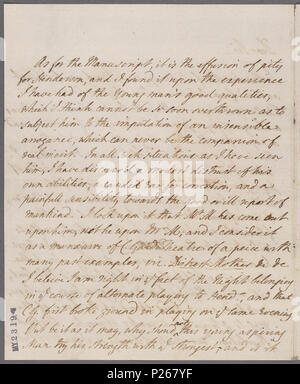 As for the Manuscript, it is the effusion of pity
for Henderson, and I found it upon the experience
I have had of the Young man's good qualities,
which I think cannot be so soon overthrown, as to
subject him to the imputation of an insensible
arrogance, which can never be the companion of
real merit. In all such situations as I have seen
him, I have discover'd a modest distrust of his
own abilities, a candid for and a
painful sensibility towards the good will & report of
mankind. I look upon it that Mr. H. has come out
upon him, not he upon Mr. and I consider it
as a manœuvre of Theatre of a peice with
many past examples, viz. Dickey's Mother &c &c
I believe I am right in ye fact of the Night belonging
in ye course of alternate playing to Bond, and that
C. G. first broke ground in playing on ye same Evening.
But be it as it may, why this young aspiring
Man try his strength with ye Strongest, and if it
MY2319
alamy
P267YF